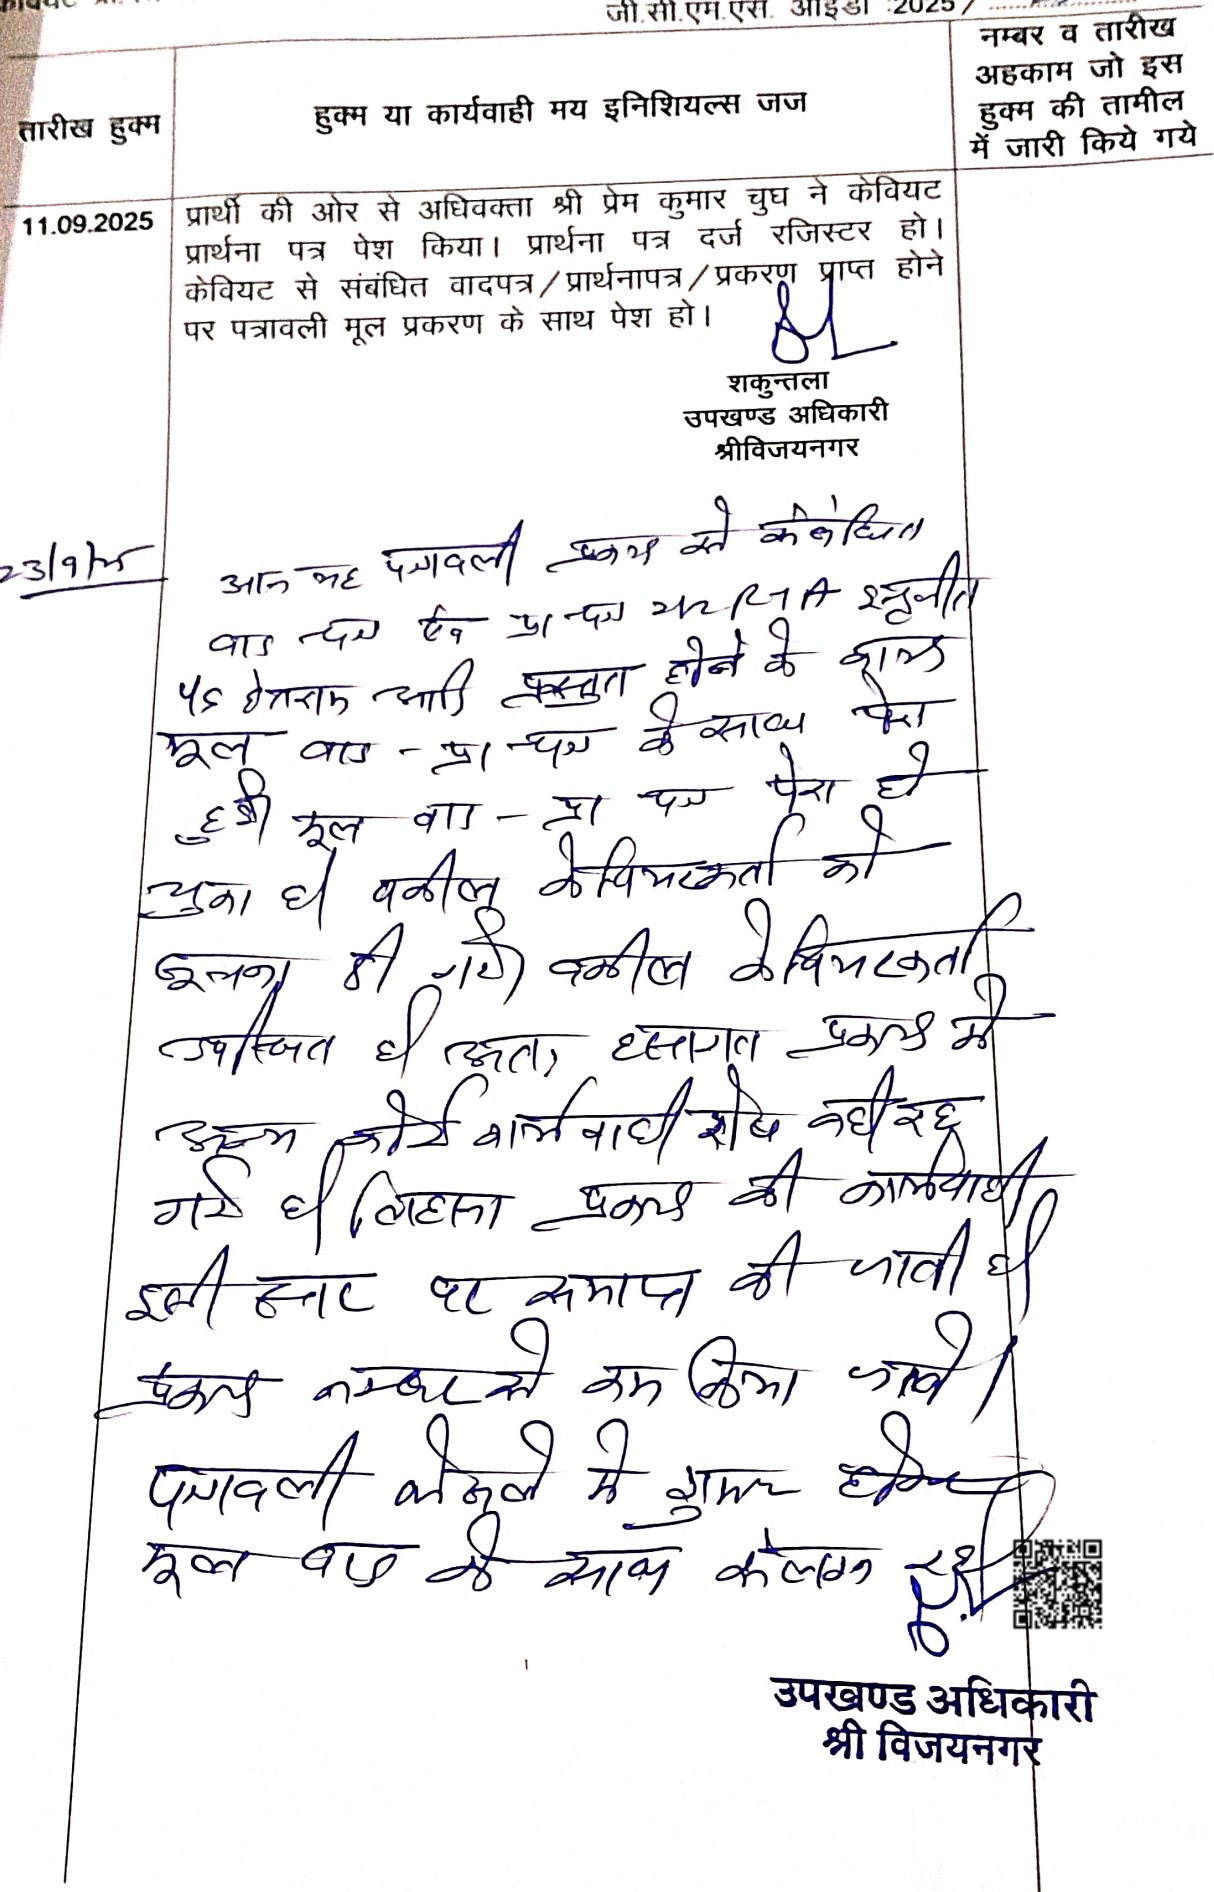 जी.सी.एम.एस. आईडी :2025/
तारीख हुक्म
हुक्म या कार्यवाही मय इनिशियल्स जज
नम्बर व तारीख
अहकाम जो इस
हुक्म की तामील
में जारी किये गये
11.09.2025
प्रार्थी की ओर से अधिवक्ता श्री प्रेम कुमार चुघ ने केवियट
प्रार्थना पत्र पेश किया। प्रार्थना पत्र दर्ज रजिस्टर हो।
केवियट से संबंधित वादपत्र/प्रार्थनापत्र/प्रकरण प्राप्त होने
पर पत्रावली मूल प्रकरण के साथ पेश हो।
शकुन्तला
उपखण्ड अधिकारी
श्रीविजयनगर
23/9/25
आज यह पत्रावली प्रकरण से संबंधित
वाद पत्र एवं प्रा पत्र
प्रस्तुत होने के कारण
मूल वाद - प्रा पत्र के साथ पेश
हुई मूल वाद - प्रा पत्र पेश हो
चुका है वकील केवियटकर्ता को
सूचना दी गई वकील केवियटकर्ता
उपस्थित है अतः हस्तगत प्रकरण में
अन्य कोई कार्यवाही शेष नहीं रह
गई है लिहाजा प्रकरण की कार्यवाही
इसी स्तर पर समाप्त की जाती है
प्रकरण नम्बर से कम किया जावे।
पत्रावली फैसले में शुमार होकर
मूल वाद के साथ संलग्न रहे
उपखण्ड अधिकारी
श्री विजयनगर